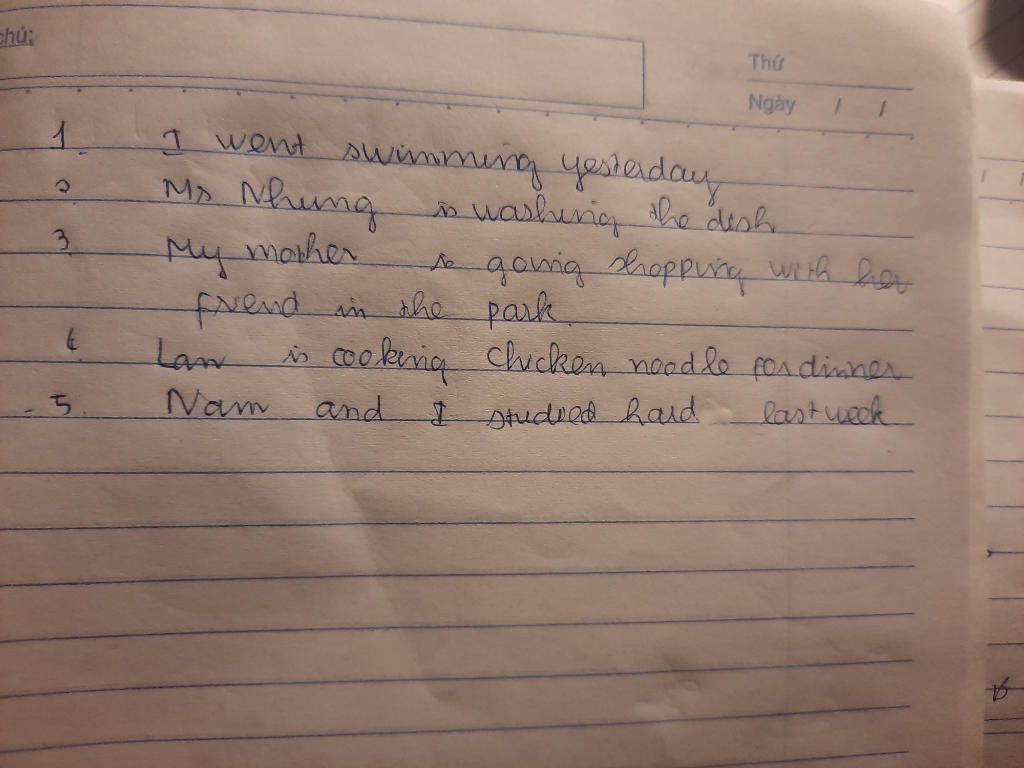 chú:
Thứ
Ngày / /
1. I went swimming yesterday
2 Ms Nhung is washing the dish
3 My mother is going shopping with her
friend in the park.
4 Lan is cooking chicken noodle for dinner
- 5. Nam and I studied hard last week